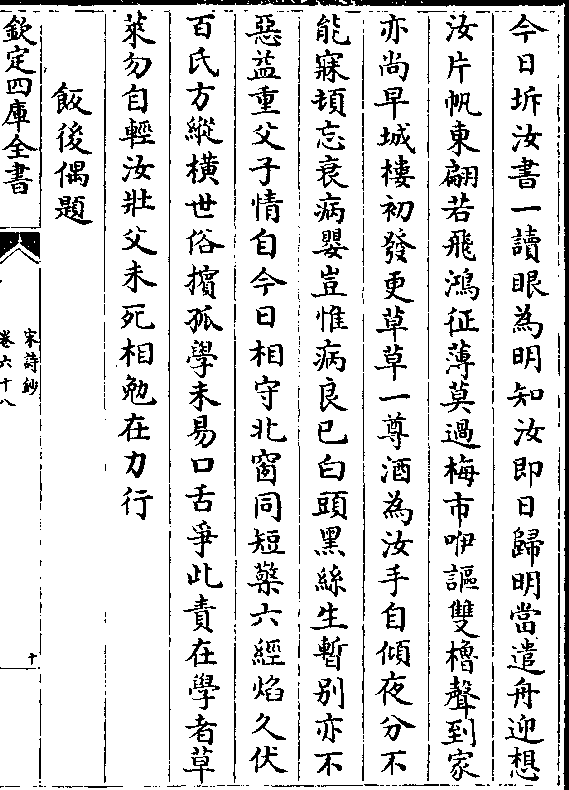 今日坼汝書一讀眼為明知汝即日歸明當遣舟迎想
汝片帆東翩若飛鴻征薄莫過梅市咿謳雙櫓聲到家
亦尚早城樓初發更草草一尊酒為汝手自傾夜分不
能寐頓忘衰病嬰豈惟病良已白頭黑絲生暫别亦不
惡益重父子情自今日相守北窗同短檠六經焰久伏
百氏方縱横世俗擯孤學未易口舌爭此責在學者草
萊勿自輕汝壯父未死相勉在力行
飯後偶題
欽定四庫全書
宋詩鈔
卷六十八
十